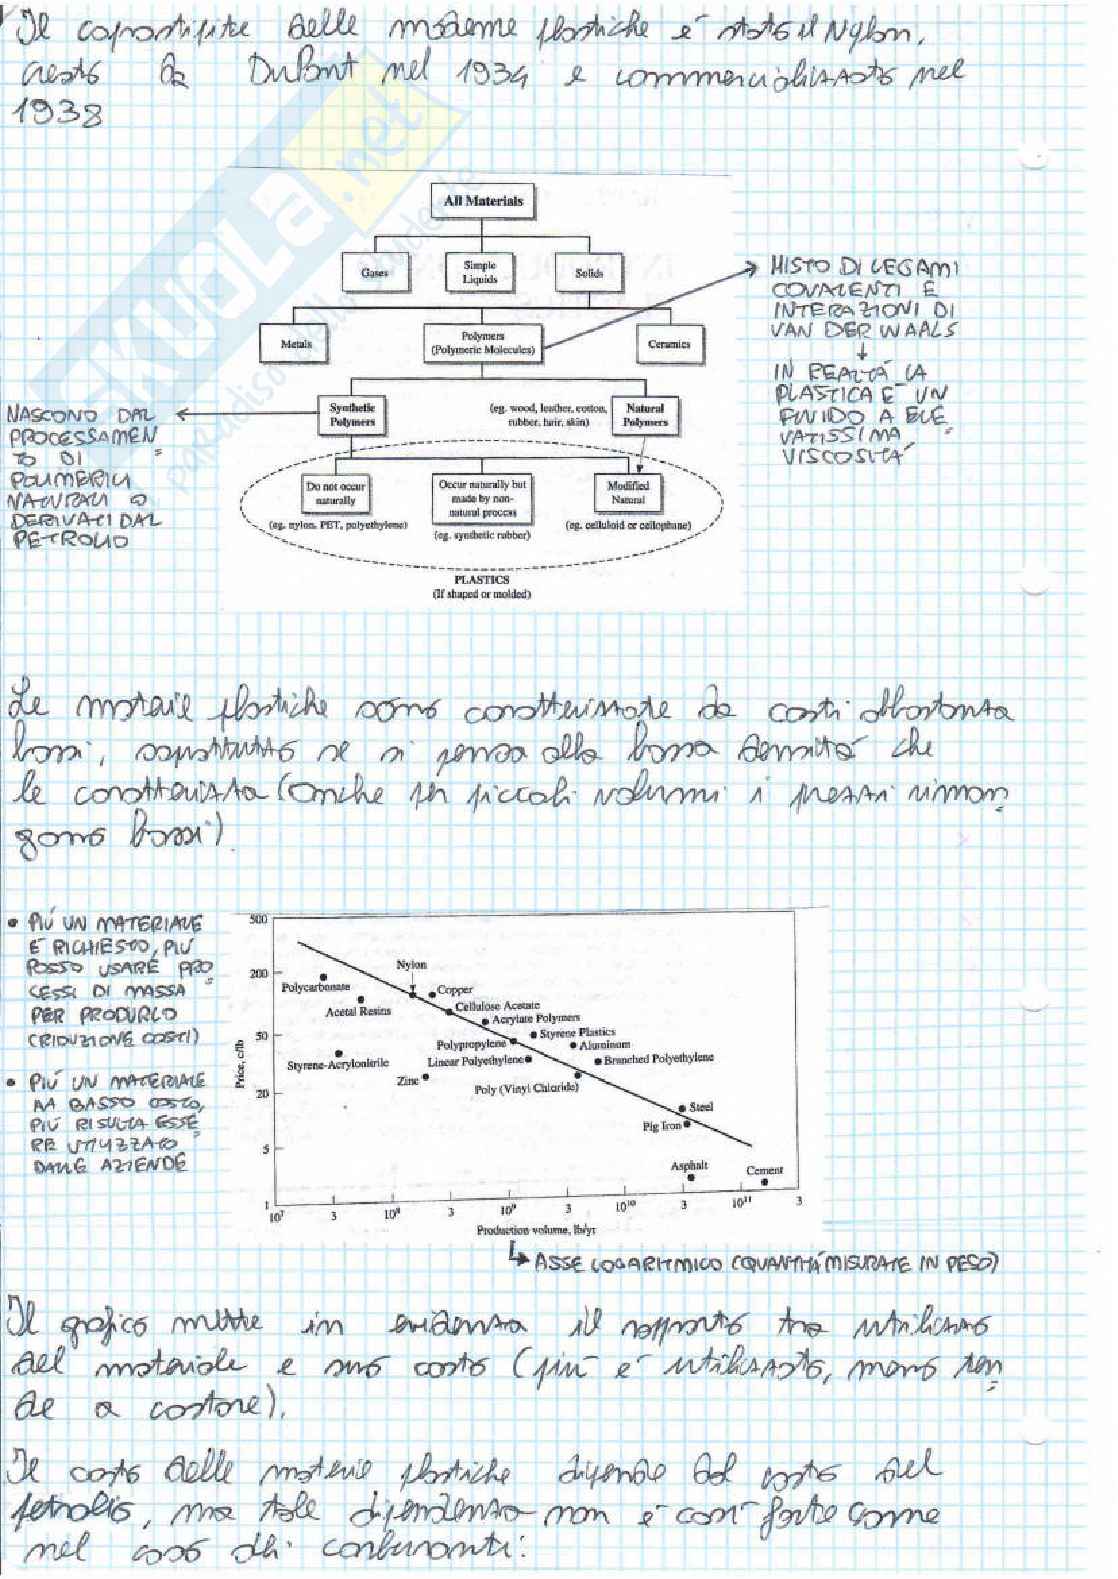 Il capostipite delle moderne plastiche è stato il Nylon,
creato da DuPont nel 1934 e commercializzato nel
1938
SKUOLA.net
All Materials
Gases
Simple
Liquids
Solids
Metals
Polymers
(Polymeric Molecules)
Ceramics
MISTO DI LEGAMI
COVALENTI E
INTERAZIONI DI
VAN DER WAALS
↓
IN REALTÀ LA
PLASTICA È UN
FLUIDO A ELE
VATISSIMA
VISCOSITÀ
NASCONO DAL
PROCESSAMEN
TO DI
POLIMERICI
NATURALI O
DERIVATI DAL
PETROLIO
Synthetic
Polymers
(eg. wood, leather, cotton,
rubber, hair, skin)
Natural
Polymers
Do not occur
naturally
Occur naturally but
made by non-
natural process
Modified
Natural
(eg. nylon, PET, polyethylene)
(eg. synthetic rubber)
(eg. celluloid or cellophane)
PLASTICS
(If shaped or molded)
Le materie plastiche sono caratterizzate da costi abbastanza
bassi, soprattutto se si pensa alla bassa densità che
le caratterizza (anche per piccoli volumi i prezzi riman
gono bassi).
• PIÙ UN MATERIALE
È RICHIESTO, PIÙ
POSSO USARE PRO
CESSI DI MASSA
PER PRODURLO
(RIDUZIONE COSTI)
• PIÙ UN MATERIALE
HA BASSO COSTO,
PIÙ RISULTA ESSE
RE UTILIZZATO
DALLE AZIENDE
Price, c/lb
500
200
50
20
5
1
Polycarbonate
Nylon
Copper
Acetal Resins
Cellulose Acetate
Acrylate Polymers
Styrene Plastics
Polypropylene
Aluminum
Styrene-Acrylonitrile
Linear Polyethylene
Branched Polyethylene
Zinc
Poly (Vinyl Chloride)
Steel
Pig Iron
Asphalt
Cement
10⁷ 3 10⁸ 3 10⁹ 3 10¹⁰ 3 10¹¹ 3
Production volume, lb/yr
↳ ASSE LOGARITMICO (QUANTITÀ MISURATE IN PESO)
Il grafico mette in evidenza il rapporto tra utilizzo
del materiale e suo costo (più è utilizzato, meno ten
de a costare).
Il costo delle materie plastiche dipende dal costo del
petrolio, ma tale dipendenza non è così forte come
nel caso dei carburanti: